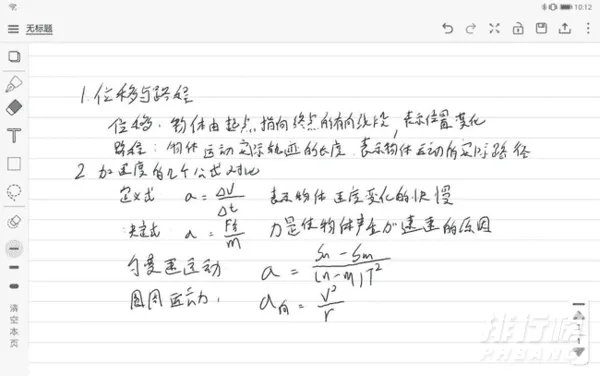 10:12
无标题
1.位移与路程
位移:物体由起点指向终点的有向线段,表示位置变化
路程:物体运动实际轨迹的长度.表示物体运动的实际路径
2 加速度的几个公式对比
定义式 a=ΔV/Δt 表示物体速度变化的快慢
决定式 a=F合/m 力是使物体产生加速度的原因
匀变速运动 a=Sn-Sm/(n-m)T²
圆周运动, a向=V²/r
清空本页
1
1
排行榜
PHBANG